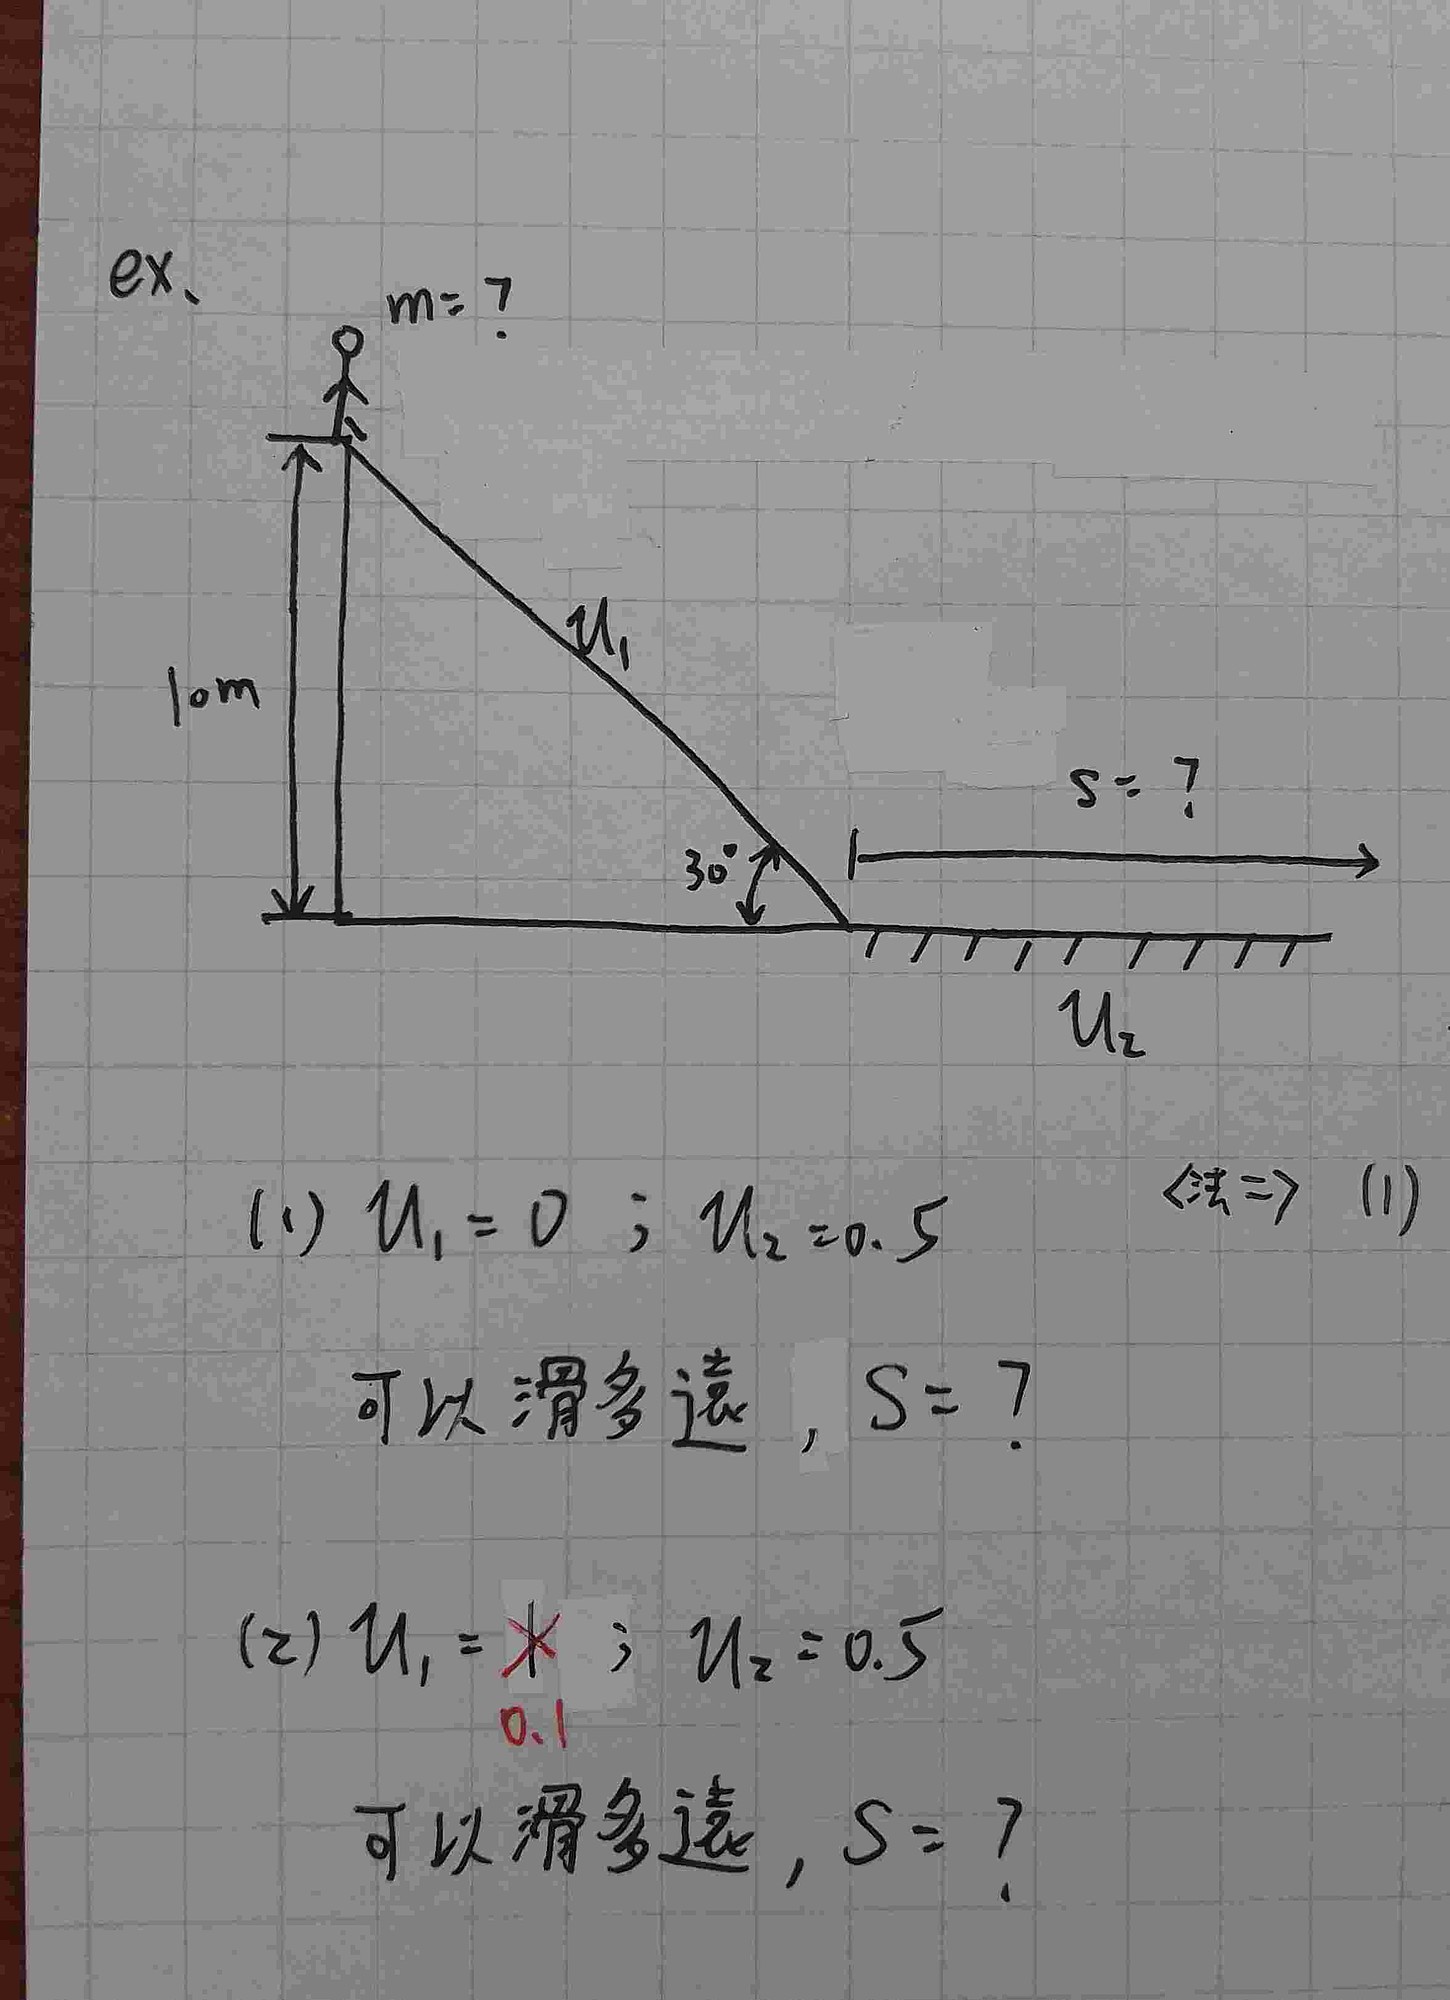 ex.
m=?
10m
u₁
30°
s=?
u₂
(1) u₁=0 ; u₂=0.5
<法二> (1)
可以滑多遠, S=?
(2) u₁= ; u₂=0.5
0.1
可以滑多遠, S=?